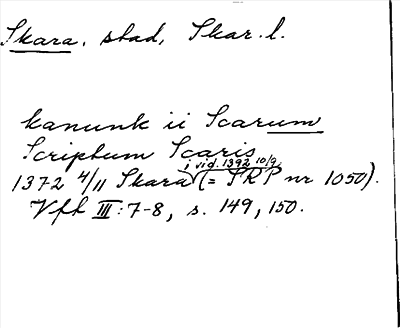 Skara, stad, Skar. l.
kanunk ii Scarum
Scriptum Scaris
i vid. 1392 10/9
1372 4/11 Skara (= SRP nr 1050).
Vft III: 7-8, s. 149, 150.